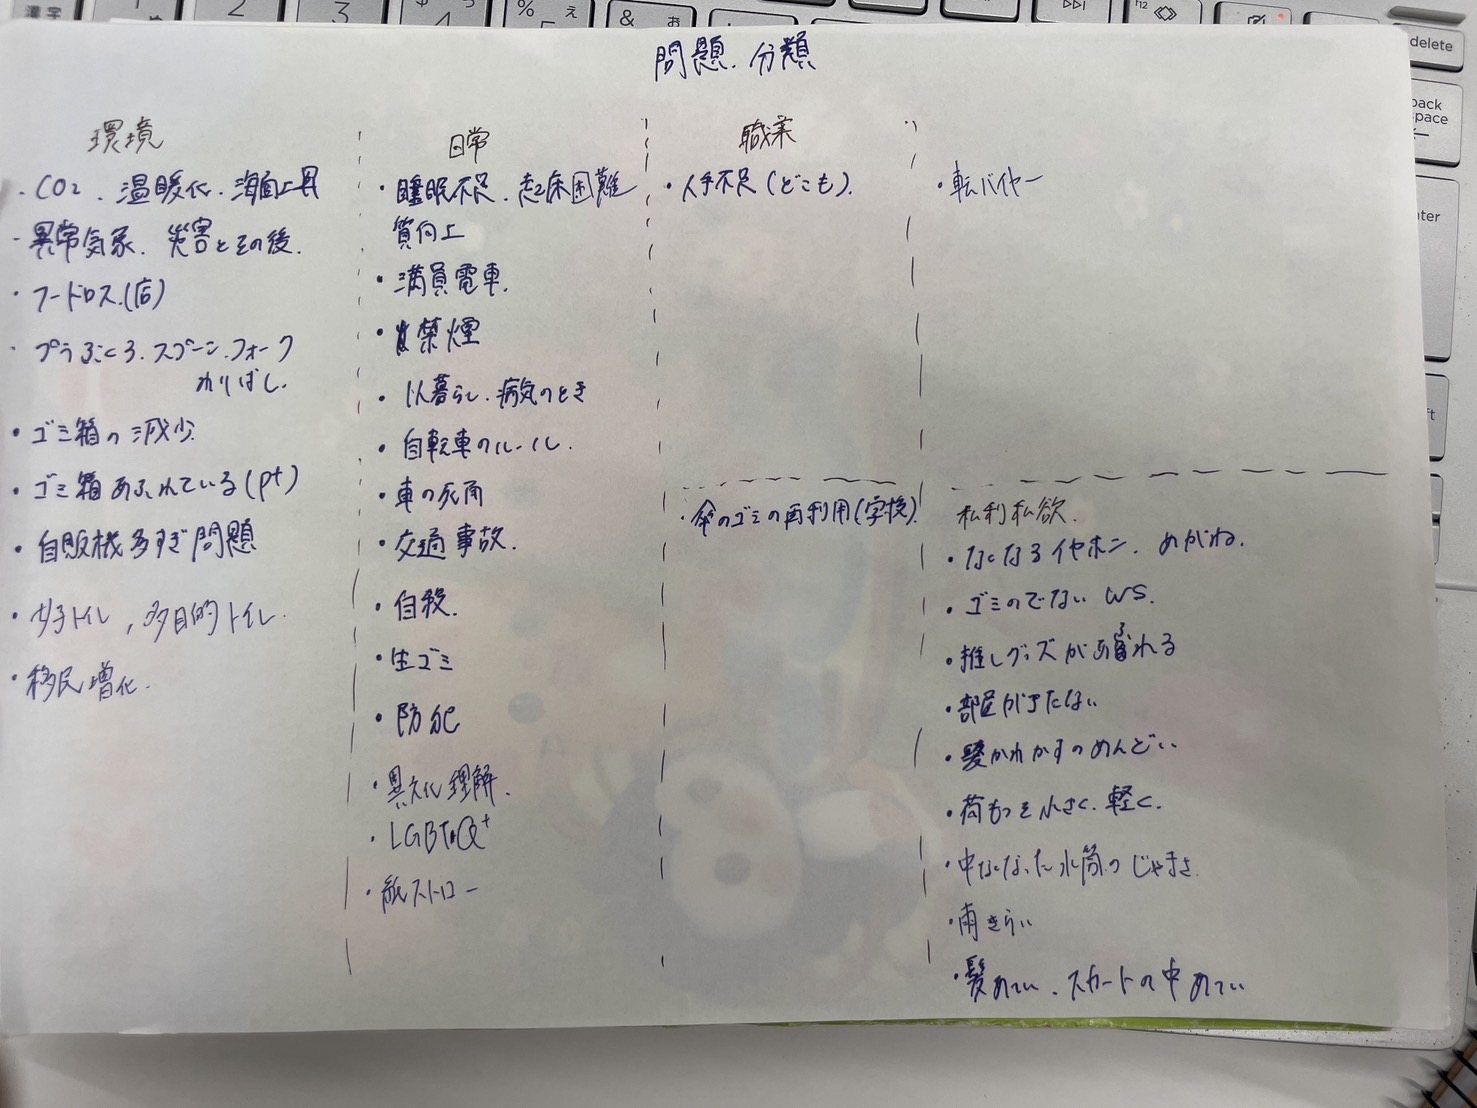 問題.分類
環境
・CO2.温暖化.海面上昇
・異常気象.災害とその後.
・フードロス.(店)
・プラぶくろ.スプーン.フォーク
わりばし.
・ゴミ箱の減少
・ゴミ箱あふれている(pt)
・自販機多すぎ問題
・女子トイレ,多目的トイレ.
・移民増化.
日常
・睡眠不足.起床困難
質向上
・満員電車.
・禁煙
・1人暮らし.病気のとき
・自転車のルール.
・車の死角
・交通事故.
・自殺.
・生ゴミ
・防犯
・異文化理解.
・LGBTQ+
・紙ストロー
職業
・人手不足(どこも).
・傘のゴミの再利用(学校)
・転バイヤー
私利私欲.
・なくなるイヤホン.めがね.
・ゴミのでないWS.
・推しグッズがあふれる
・部屋がきたない
・髪かわかすのめんどい
・荷もつを小さく.軽く.
・中なくなった水筒のじゃまさ.
・雨きらい
・髪あつい.スカートの中あつい